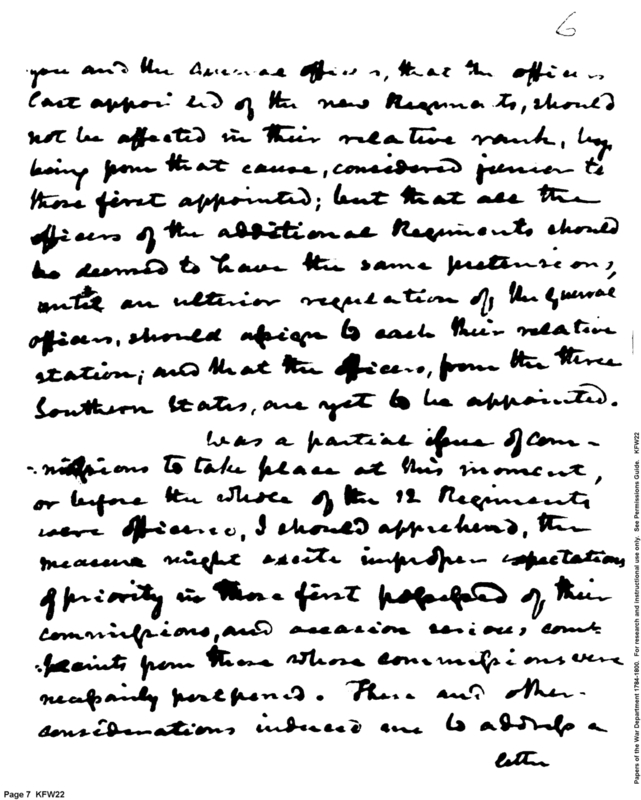 6
you and the General officers, that the officers
last appointed of the new Regiments, should
not be affected in their relative rank, by
being from that cause, considered junior to
those first appointed; but that all the
officers of the additional Regiments should
be deemed to have the same pretensions,
until an ulterior regulation of, the General
officers, should assign to each their relative
station; and that the officers, from the three
Southern States, are yet to be appointed.
Was a partial issue of com-
-missions to take place at this moment,
or before the whole of the 12 Regiments
were officered, I should apprehend, the
measure might excite improper expectations
of priority in those first possessed of, their
commissions, and occasion serious com-
-plaints from those whose commissions were
necessarily postponed. These and other
considerations induced me to address a
letter
Page 7 KFW22
Papers of the War Department 1784-1800. For research and instructional use only. See Permissions Guide. KFW22